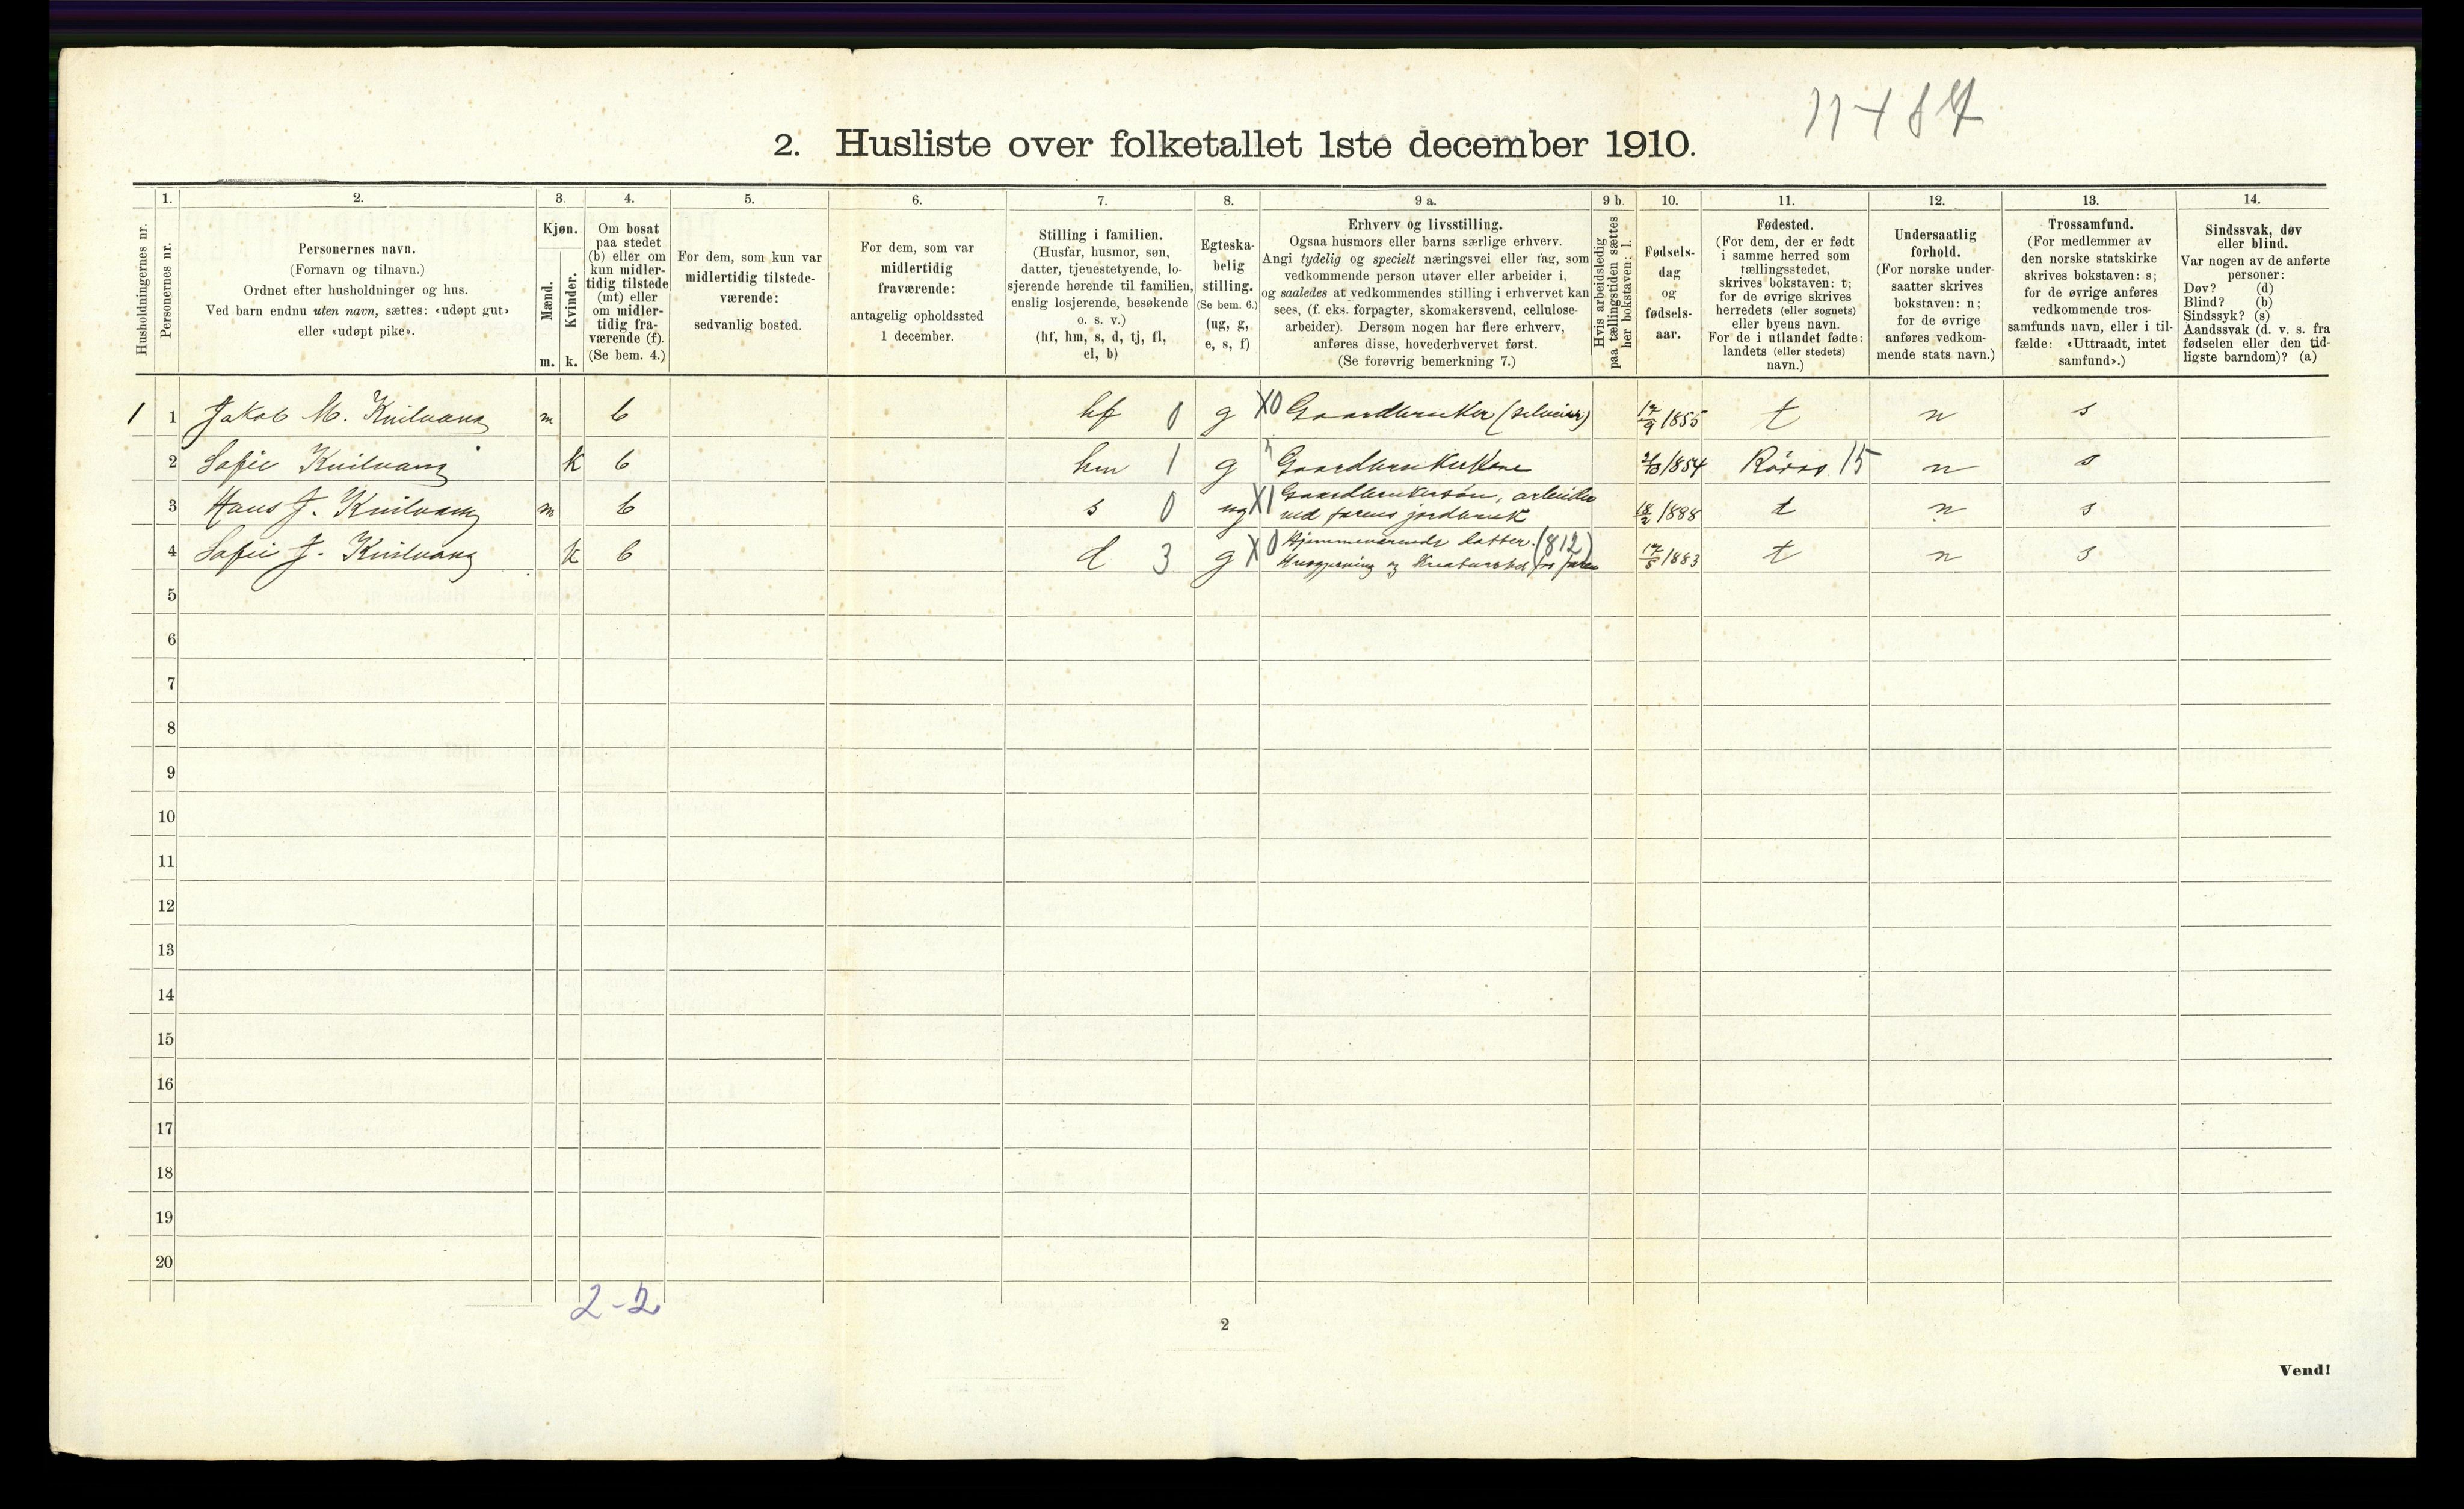 11487
2. Husliste over folketallet 1ste december 1910.
Husholdningernes nr.
1.
Personernes nr.
2.
Personernes navn.
(Fornavn og tilnavn.)
Ordnet efter husholdninger og hus.
Ved barn endnu uten navn, sættes: «udøpt gut»
eller «udøpt pike».
3.
Kjøn.
Mænd.
Kvinder.
m. k.
4.
Om bosat
paa stedet
(b) eller om
kun midler-
tidig tilstede
(mt) eller
om midler-
tidig fra-
værende (f).
(Se bem. 4.)
5.
For dem, som kun var
midlertidig tilstede-
værende:
sedvanlig bosted.
6.
For dem, som var
midlertidig
fraværende:
antagelig opholdssted
1 december.
7.
Stilling i familien.
(Husfar, husmor, søn,
datter, tjenestetyende, lo-
sjerende hørende til familien,
enslig losjerende, besøkende
o. s. v.)
(hf, hm, s, d, tj, fl,
el, b)
8.
Egteska-
belig
stilling.
(Se bem. 6.)
(ug, g,
e, s, f)
9 a.
Erhverv og livsstilling.
Ogsaa husmors eller barns særlige erhverv.
Angi tydelig og specielt næringsvei eller fag, som
vedkommende person utøver eller arbeider i,
og saaledes at vedkommendes stilling i erhvervet kan
sees, (f. eks. forpagter, skomakersvend, cellulose-
arbeider). Dersom nogen har flere erhverv,
anføres disse, hovederhvervet først.
(Se forøvrig bemerkning 7.)
9 b.
Hvis arbeidsledig
paa tællingstiden sættes
her bokstaven: l.
10.
Fødsels-
dag
og
fødsels-
aar.
11.
Fødested.
(For dem, der er født
i samme herred som
tællingsstedet,
skrives bokstaven: t;
for de øvrige skrives
herredets (eller sognets)
eller byens navn.
For de i utlandet fødte:
landets (eller stedets)
navn.)
12.
Undersaatlig
forhold.
(For norske under-
saatter skrives
bokstaven: n;
for de øvrige
anføres vedkom-
mende stats navn.)
13.
Trossamfund.
(For medlemmer av
den norske statskirke
skrives bokstaven: s;
for de øvrige anføres
vedkommende tros-
samfunds navn, eller i til-
fælde: «Uttraadt, intet
samfund».)
14.
Sindssvak, døv
eller blind.
Var nogen av de anførte
personer:
Døv? (d)
Blind? (b)
Sindssyk? (s)
Aandssvak (d. v. s. fra
fødselen eller den tid-
ligste barndom)? (a)
1 1 Jakob M. Kvilvang m b hf 0 g X0 Gaardbruker (selveier) 17/9 1855 t n s
2 Sofie Kvilvang k b hm 1 g Gaardbrukerkone 1854 Röros 15 n s
3 Hans J. Kvilvang m b s 0 ug X1 Gaardbrukersön, arbeider
ved farens jordbruk 18/2 1888 t n s
4 Sofie J. Kvilvang k b d 3 g X0 Hjemmeværende datter. (812)
Husgjerning og Kreaturstel for faren 17/5 1883 t n s
5
6
7
8
9
10
11
12
13
14
15
16
17
18
19
20
2-2
2
Vend!